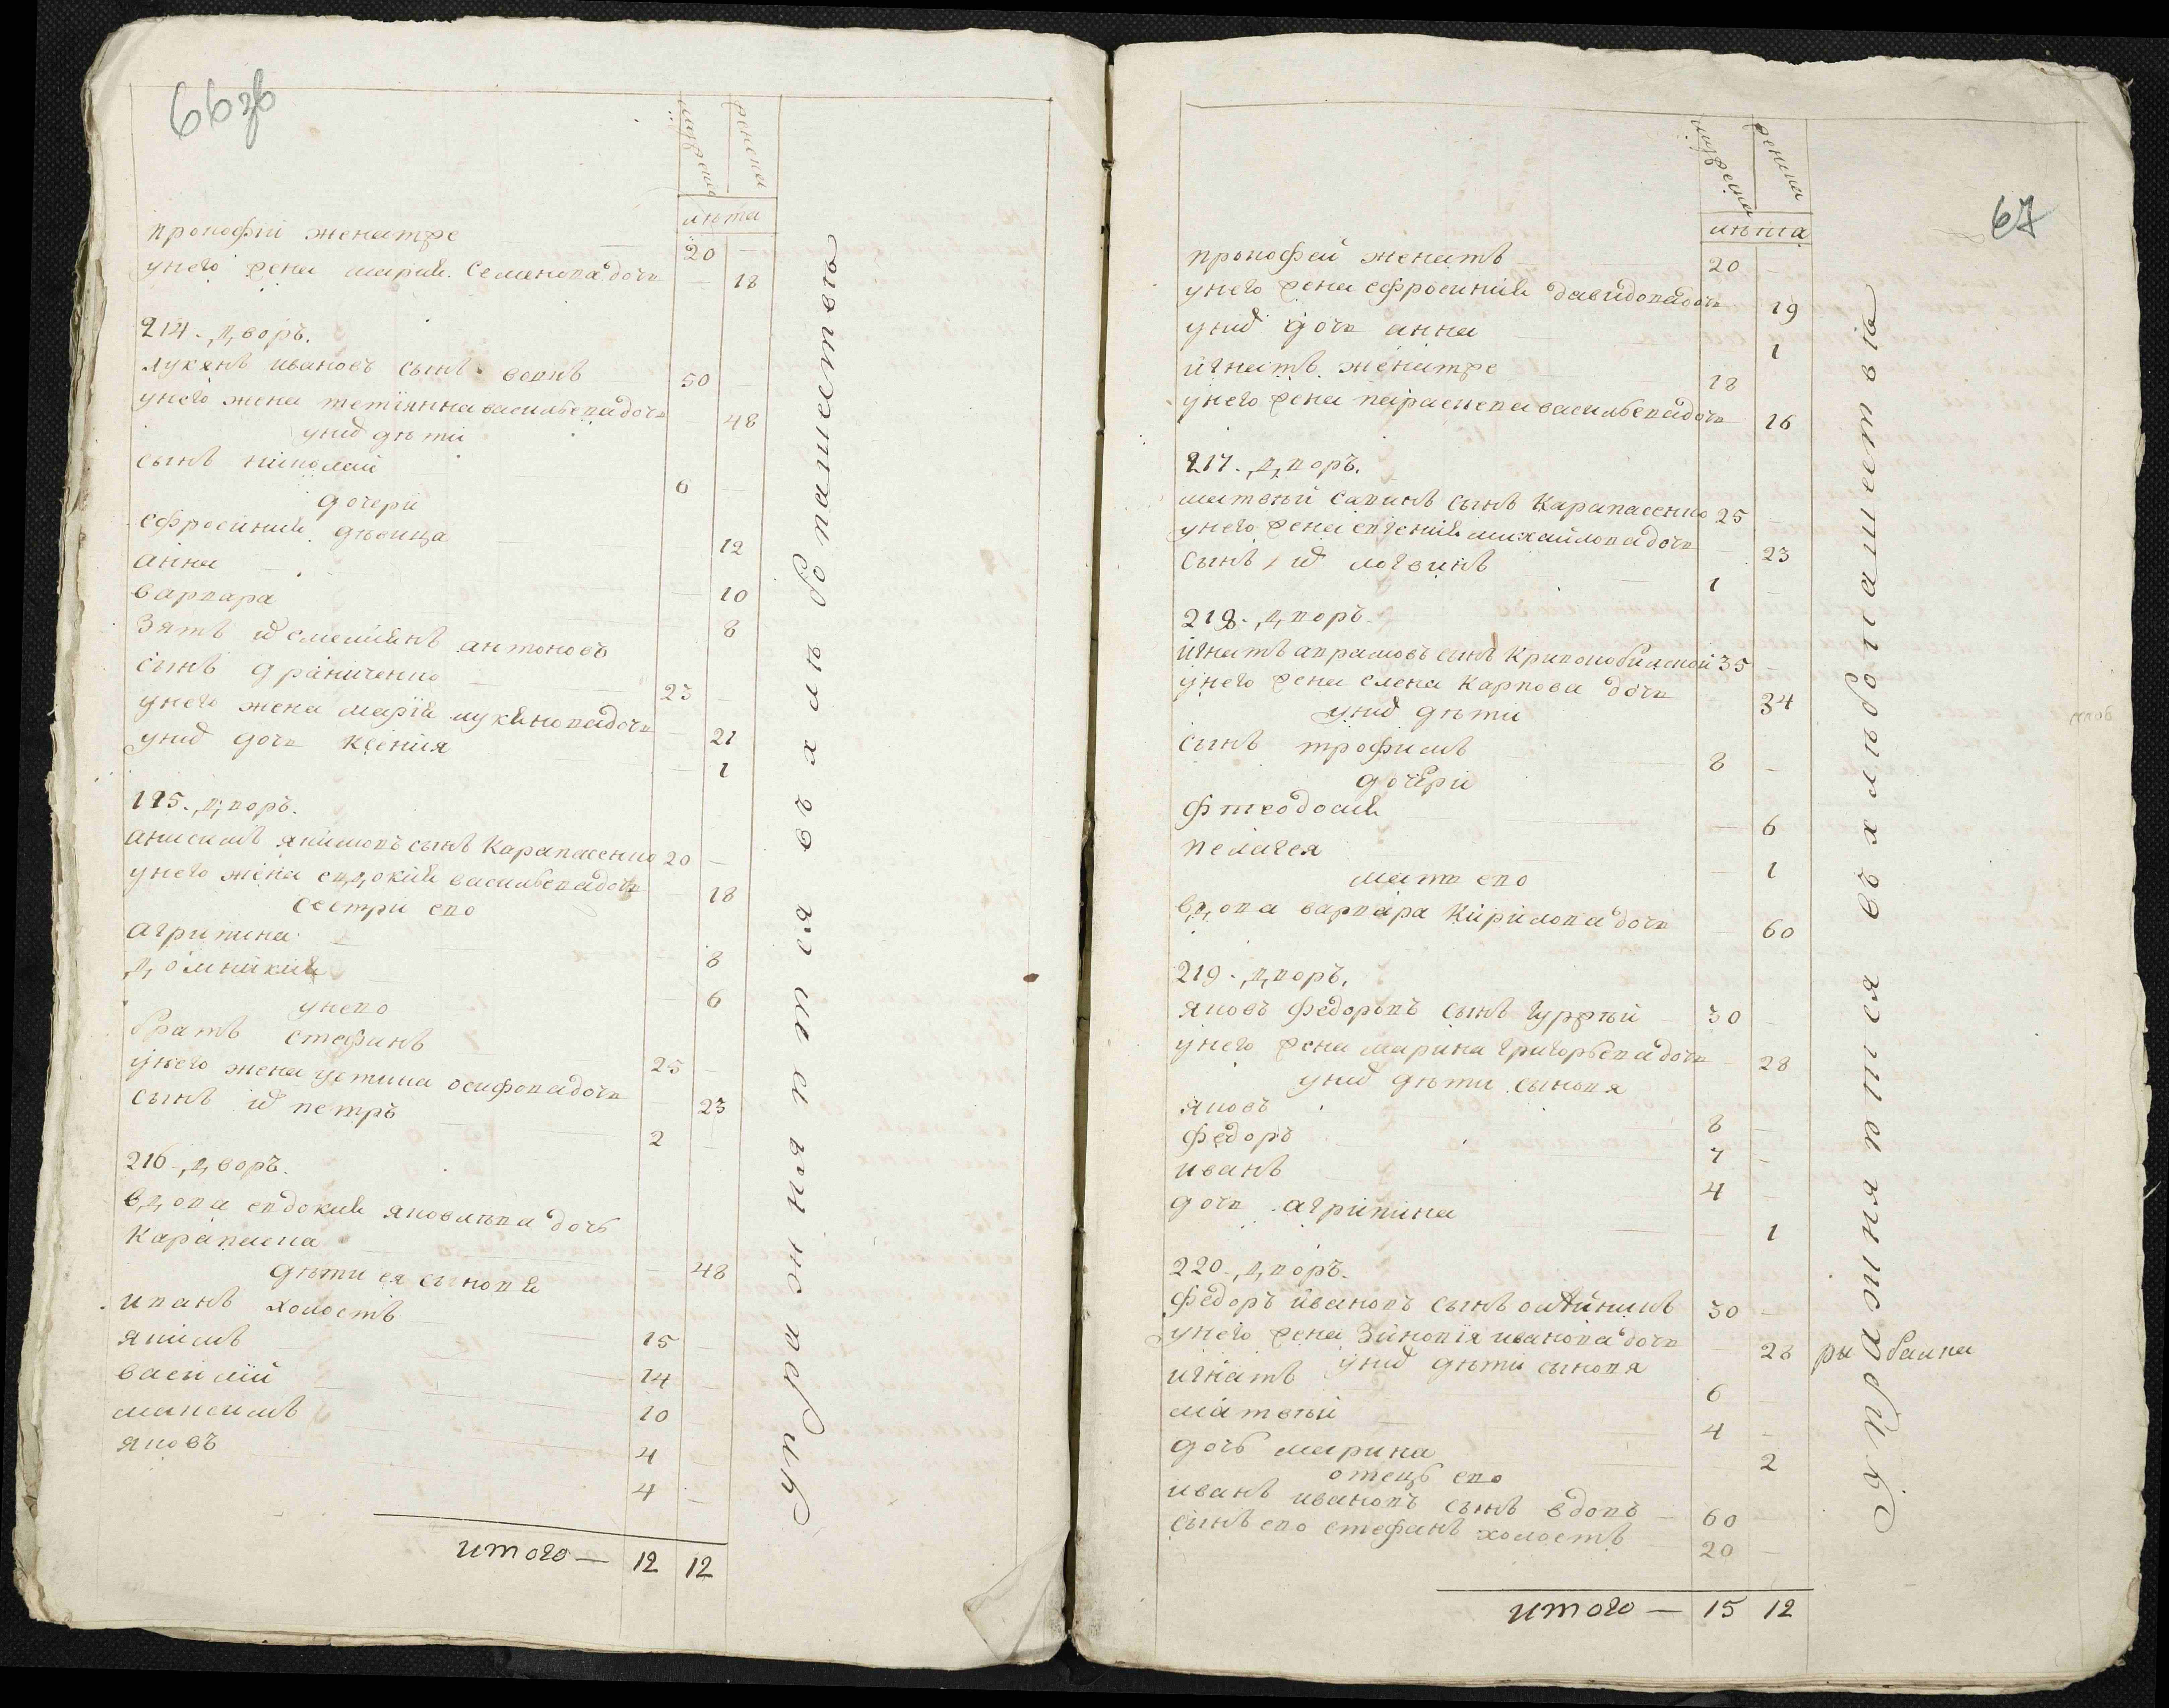 66 зв
мужеска
женска
лѣта
прокофій женатже 20 —
унего жена мария семенова дочь — 18
214. дворъ.
лукянъ ивановъ сынъ 50
унего жена тетянна васильева дочь — 48
унихъ дѣти
сынъ николай 6
дочери
ефросиния дѣвица 12
анна — 10
варвара — 8
зять ихъ емелиянъ антоновъ
сынъ драниченко 23 —
унего жена мария лукянова дочь — 21
унихъ дочь ксения — 1
115. дворъ.
анисимъ якимовъ сынъ карапасенко 20 —
унего жена евдокия васильева дочь — 18
сестри ево
агрипина — 8
домникия — 6
унево
братъ стефанъ 25 —
унего жена устина осифова дочь — 23
сынъ их петръ 2 —
216. дворъ.
вдова евдокия яковлева дочь
карапаска — 48
дѣти ея синовя
иванъ холостъ 15 —
якимъ 14 —
василий 10 —
максимъ 4 —
яковъ 4 —
итого — 12 12
упражняются въ хлѣбопашествѣ
67
мужеска
женска
лѣта
прокофей женатъ 20 —
унего жена ефросиния давидова дочь 19
унихъ дочь анна 1
игнатъ женатже 18
унего жена параскева васильева дочь 16
217. дворъ.
матвѣй савинъ сынъ карапасенко 25 —
унего жена евгения михайлова дочь — 23
сынъ их логвинъ 1 —
218. дворъ.
игнатъ аврамовъ синъ кривокобилской 35 —
унего жена елена карпова дочь 34
унихъ дѣти
сынъ трофимъ 8 —
дочери
фтеодосия — 6
пелагея — 1
мать ево
вдова варвара кирилова дочь — 60
219. дворъ.
яковъ федоровъ сынъ гуржѣй 30 —
унего жена марина григорьева дочь — 28
унихъ дѣти сыновя
яковъ 8 —
федоръ 7 —
иванъ 4 —
дочь агрипина — 1
220. дворъ.
федоръ ивановъ сынъ олѣйникъ 30 —
унего жена зиновия иванова дочь — 28
унихъ дѣти сыновя
игнатъ 6
матвѣй 4 —
дочь марина — 2
отецъ ево
иванъ ивановъ сынъ вдовъ — 60 —
сынъ ево стефанъ холостъ 20 —
итого — 15 12
упражняются въ хлѣбопашествіи